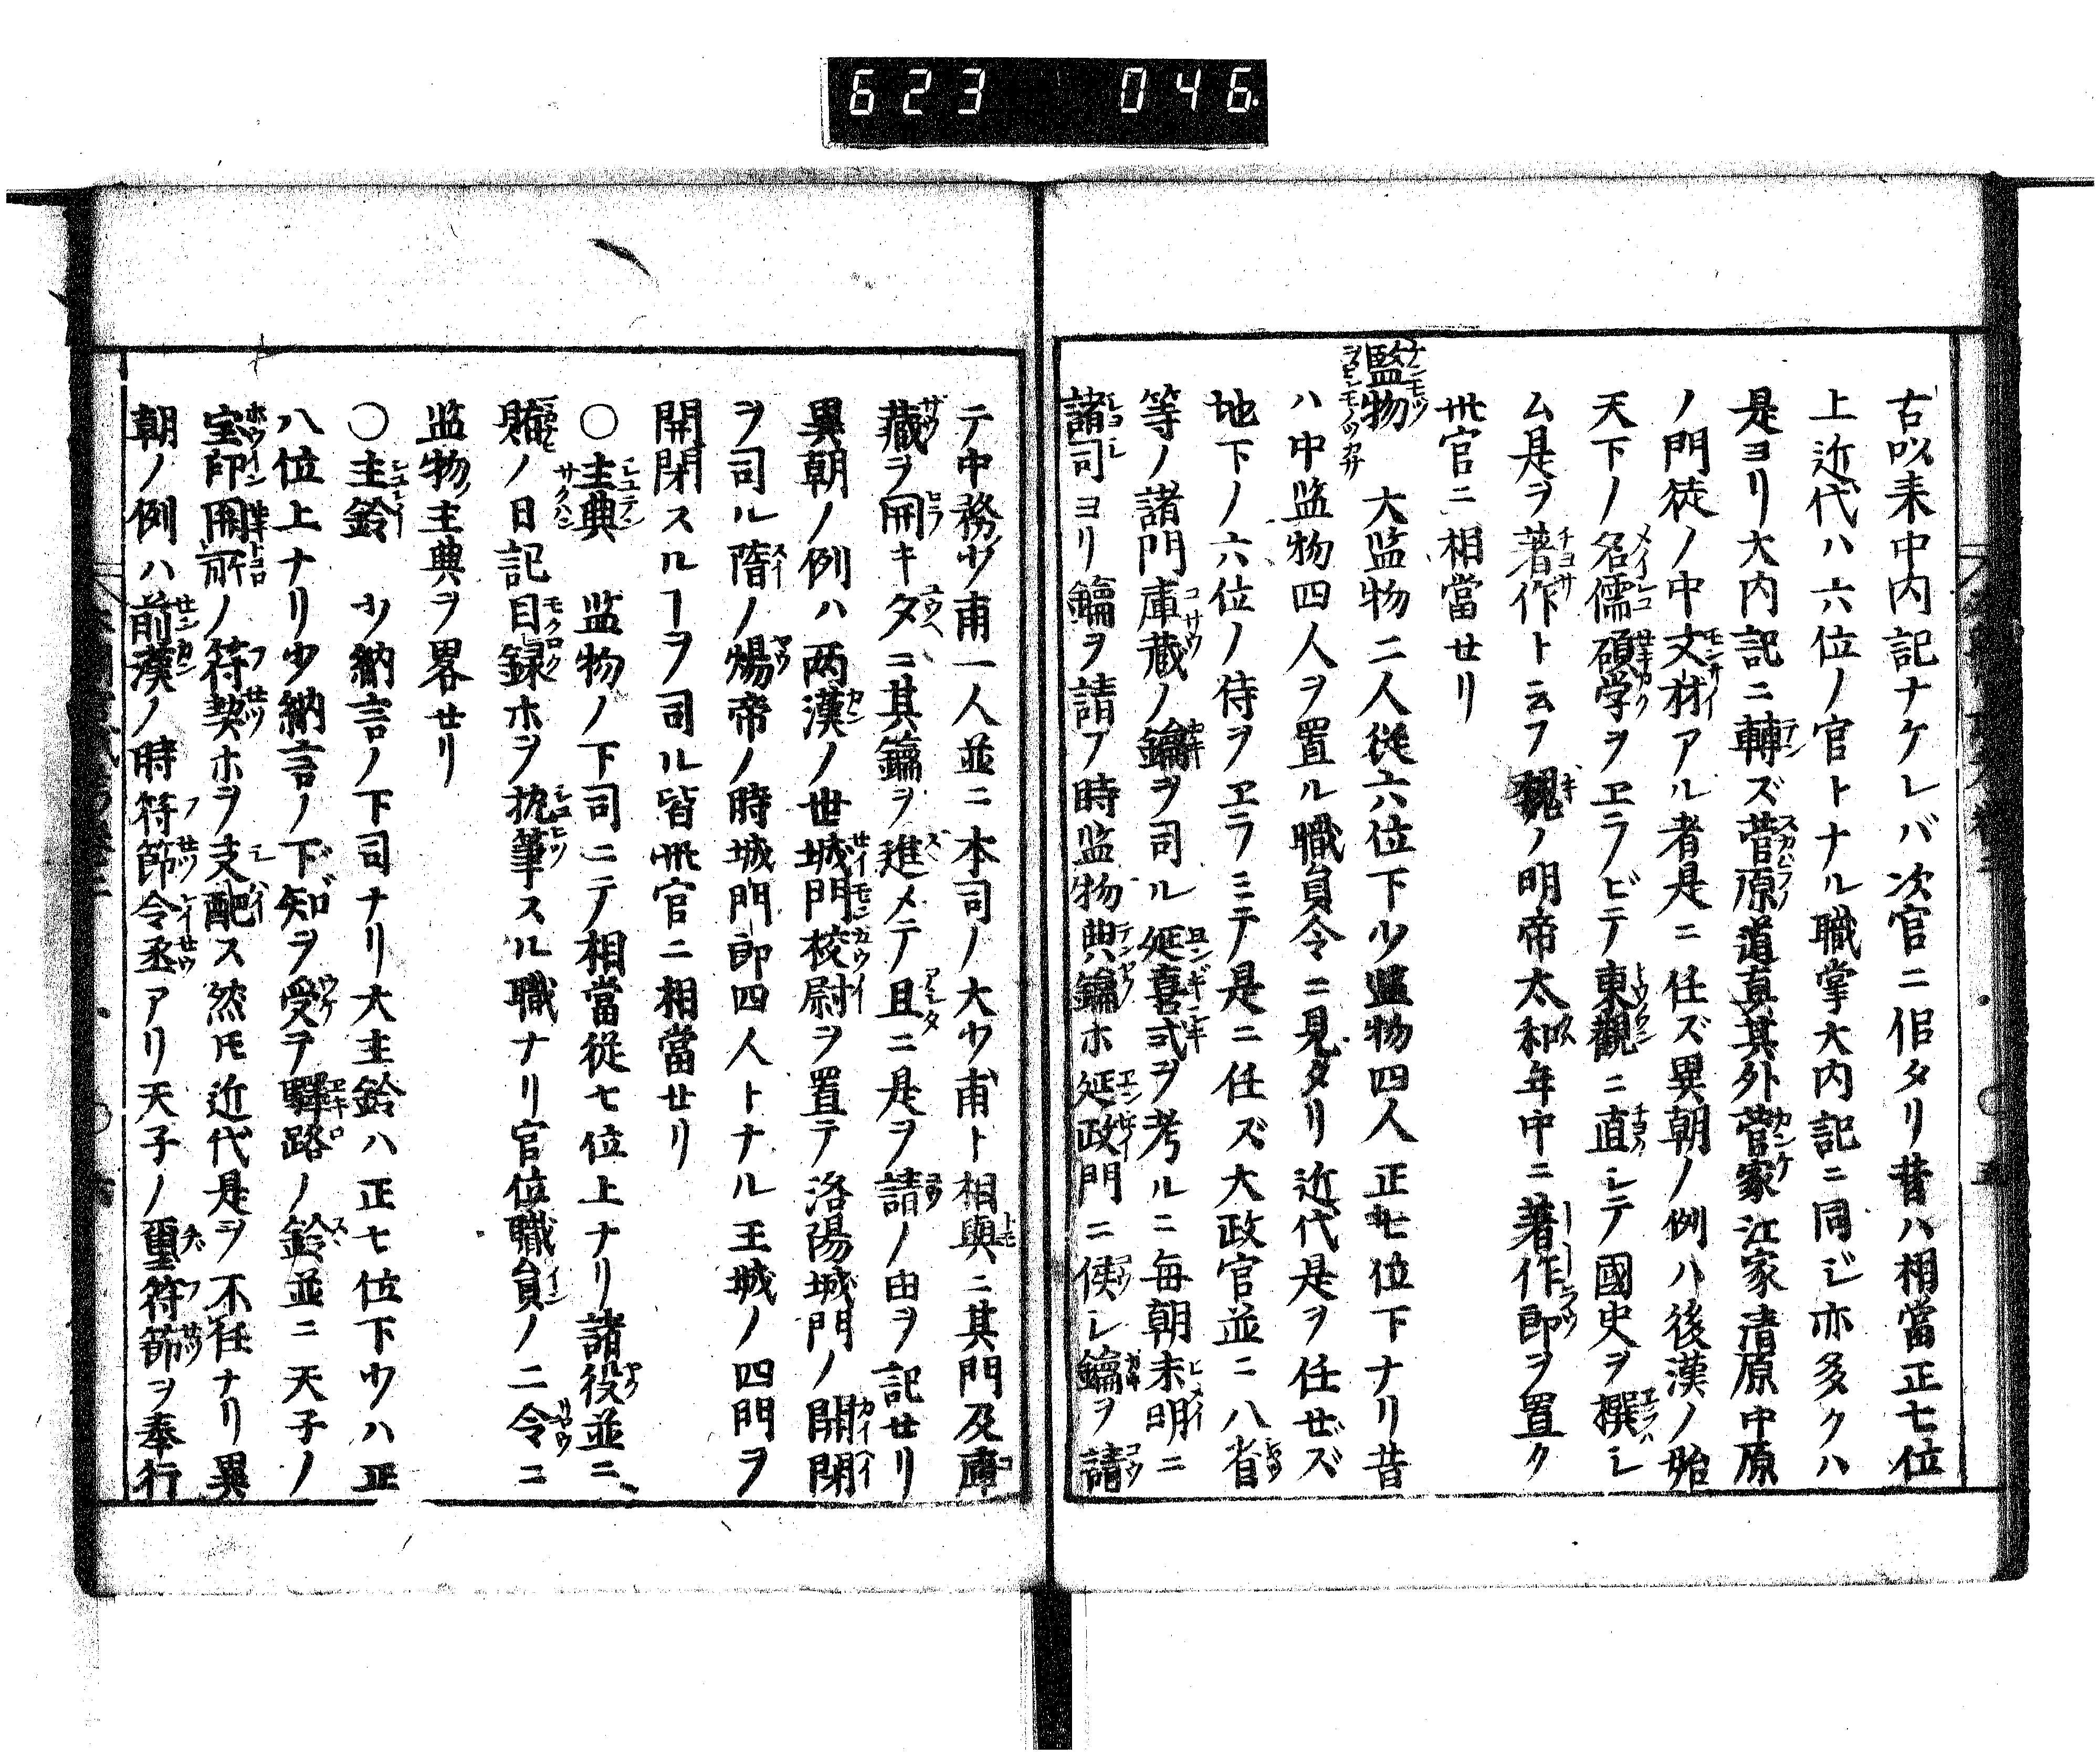 623 046
古以来中内記ナケレバ次官ニ侶タリ昔ハ相當正七位
上近代ハ六位ノ官トナル職掌大内記ニ同ジ亦多クハ
是ヨリ大内記ニ轉ズ菅原道真其外菅家江家清原中原
ノ門徒ノ中文材アル者是ニ任ズ異朝ノ例ハ後漢ノ始
天下ノ名儒碩学ヲヱラビテ東觀ニ直シテ國史ヲ撰シ
ム是ヲ著作ト云フ魏ノ明帝太和年中ニ著作郎ヲ置ク
此官ニ相當せリ
監物 大监物二人従六位下少監物四人正七位下ナリ昔
ハ中监物四人ヲ置ル職員令ニ見タリ近代是ヲ任ゼズ
地下ノ六位ノ侍ヲヱラミテ是ニ任ズ大政官並ニ八省
等ノ諸門庫蔵ノ鑰ヲ司ル延喜式ヲ考ルニ毎朝未明ニ
諸司ヨリ鑰ヲ請フ時监物典鑰ホ延政門ニ候シ鑰ヲ請
テ中務少甫一人並ニ本司ノ大少甫ト相與ニ其門及庫
藏ヲ開キタニ其鑰ヲ進メテ且ニ是ヲ請ノ由ヲ記せリ
異朝ノ例ハ两漢ノ世城門校尉ヲ置テ洛陽城門ノ開閉
ヲ司ル隋ノ煬帝ノ時城門郎四人トナル王城ノ四門ヲ
開閉スルヿヲ司ル皆此官ニ相當せリ
〇主典 监物ノ下司ニテ相當従七位上ナリ諸役並ニ
ノ日記目録ホヲ执筆スル職ナリ官位職員ノ二令ニ
监物ノ主典ヲ畧せリ
〇主鈴 少納言ノ下司ナリ大主鈴ハ正七位下少ハ正
八位上ナリ少納言ノ下知ヲ受テ驛路ノ鈴並ニ天子ノ
宝印関所ノ符契ホヲ支配ス然𪜈近代是ヲ不任ナリ異
朝ノ例ハ前漢ノ時符節令丞アリ天子ノ璽符節ヲ奉行